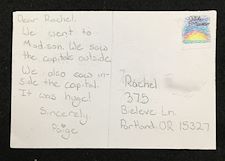 Dear Rachel,
We went to
Madison. We saw
the capitols outside.
We also saw in-
side the capital.
It was huge!
Sincerely,
Paige
Rachel
375
Bieleve Ln.
Portland, OR 15327